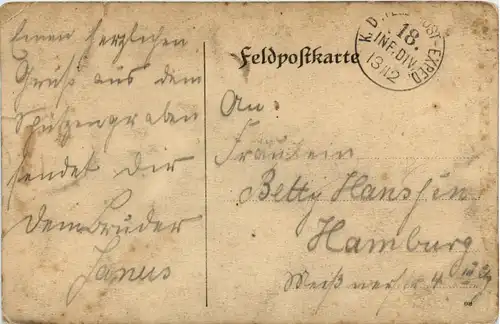 Einen herzlichen
Gruß aus dem
Schützengraben
sendet Dir
Dein Bruder
Janus
Feldpostkarte
K. D. FELDPOST-EXPED.
18.
INF. DIV.
13 12
An:
Fräulein
Betty Hanssen
Hamburg